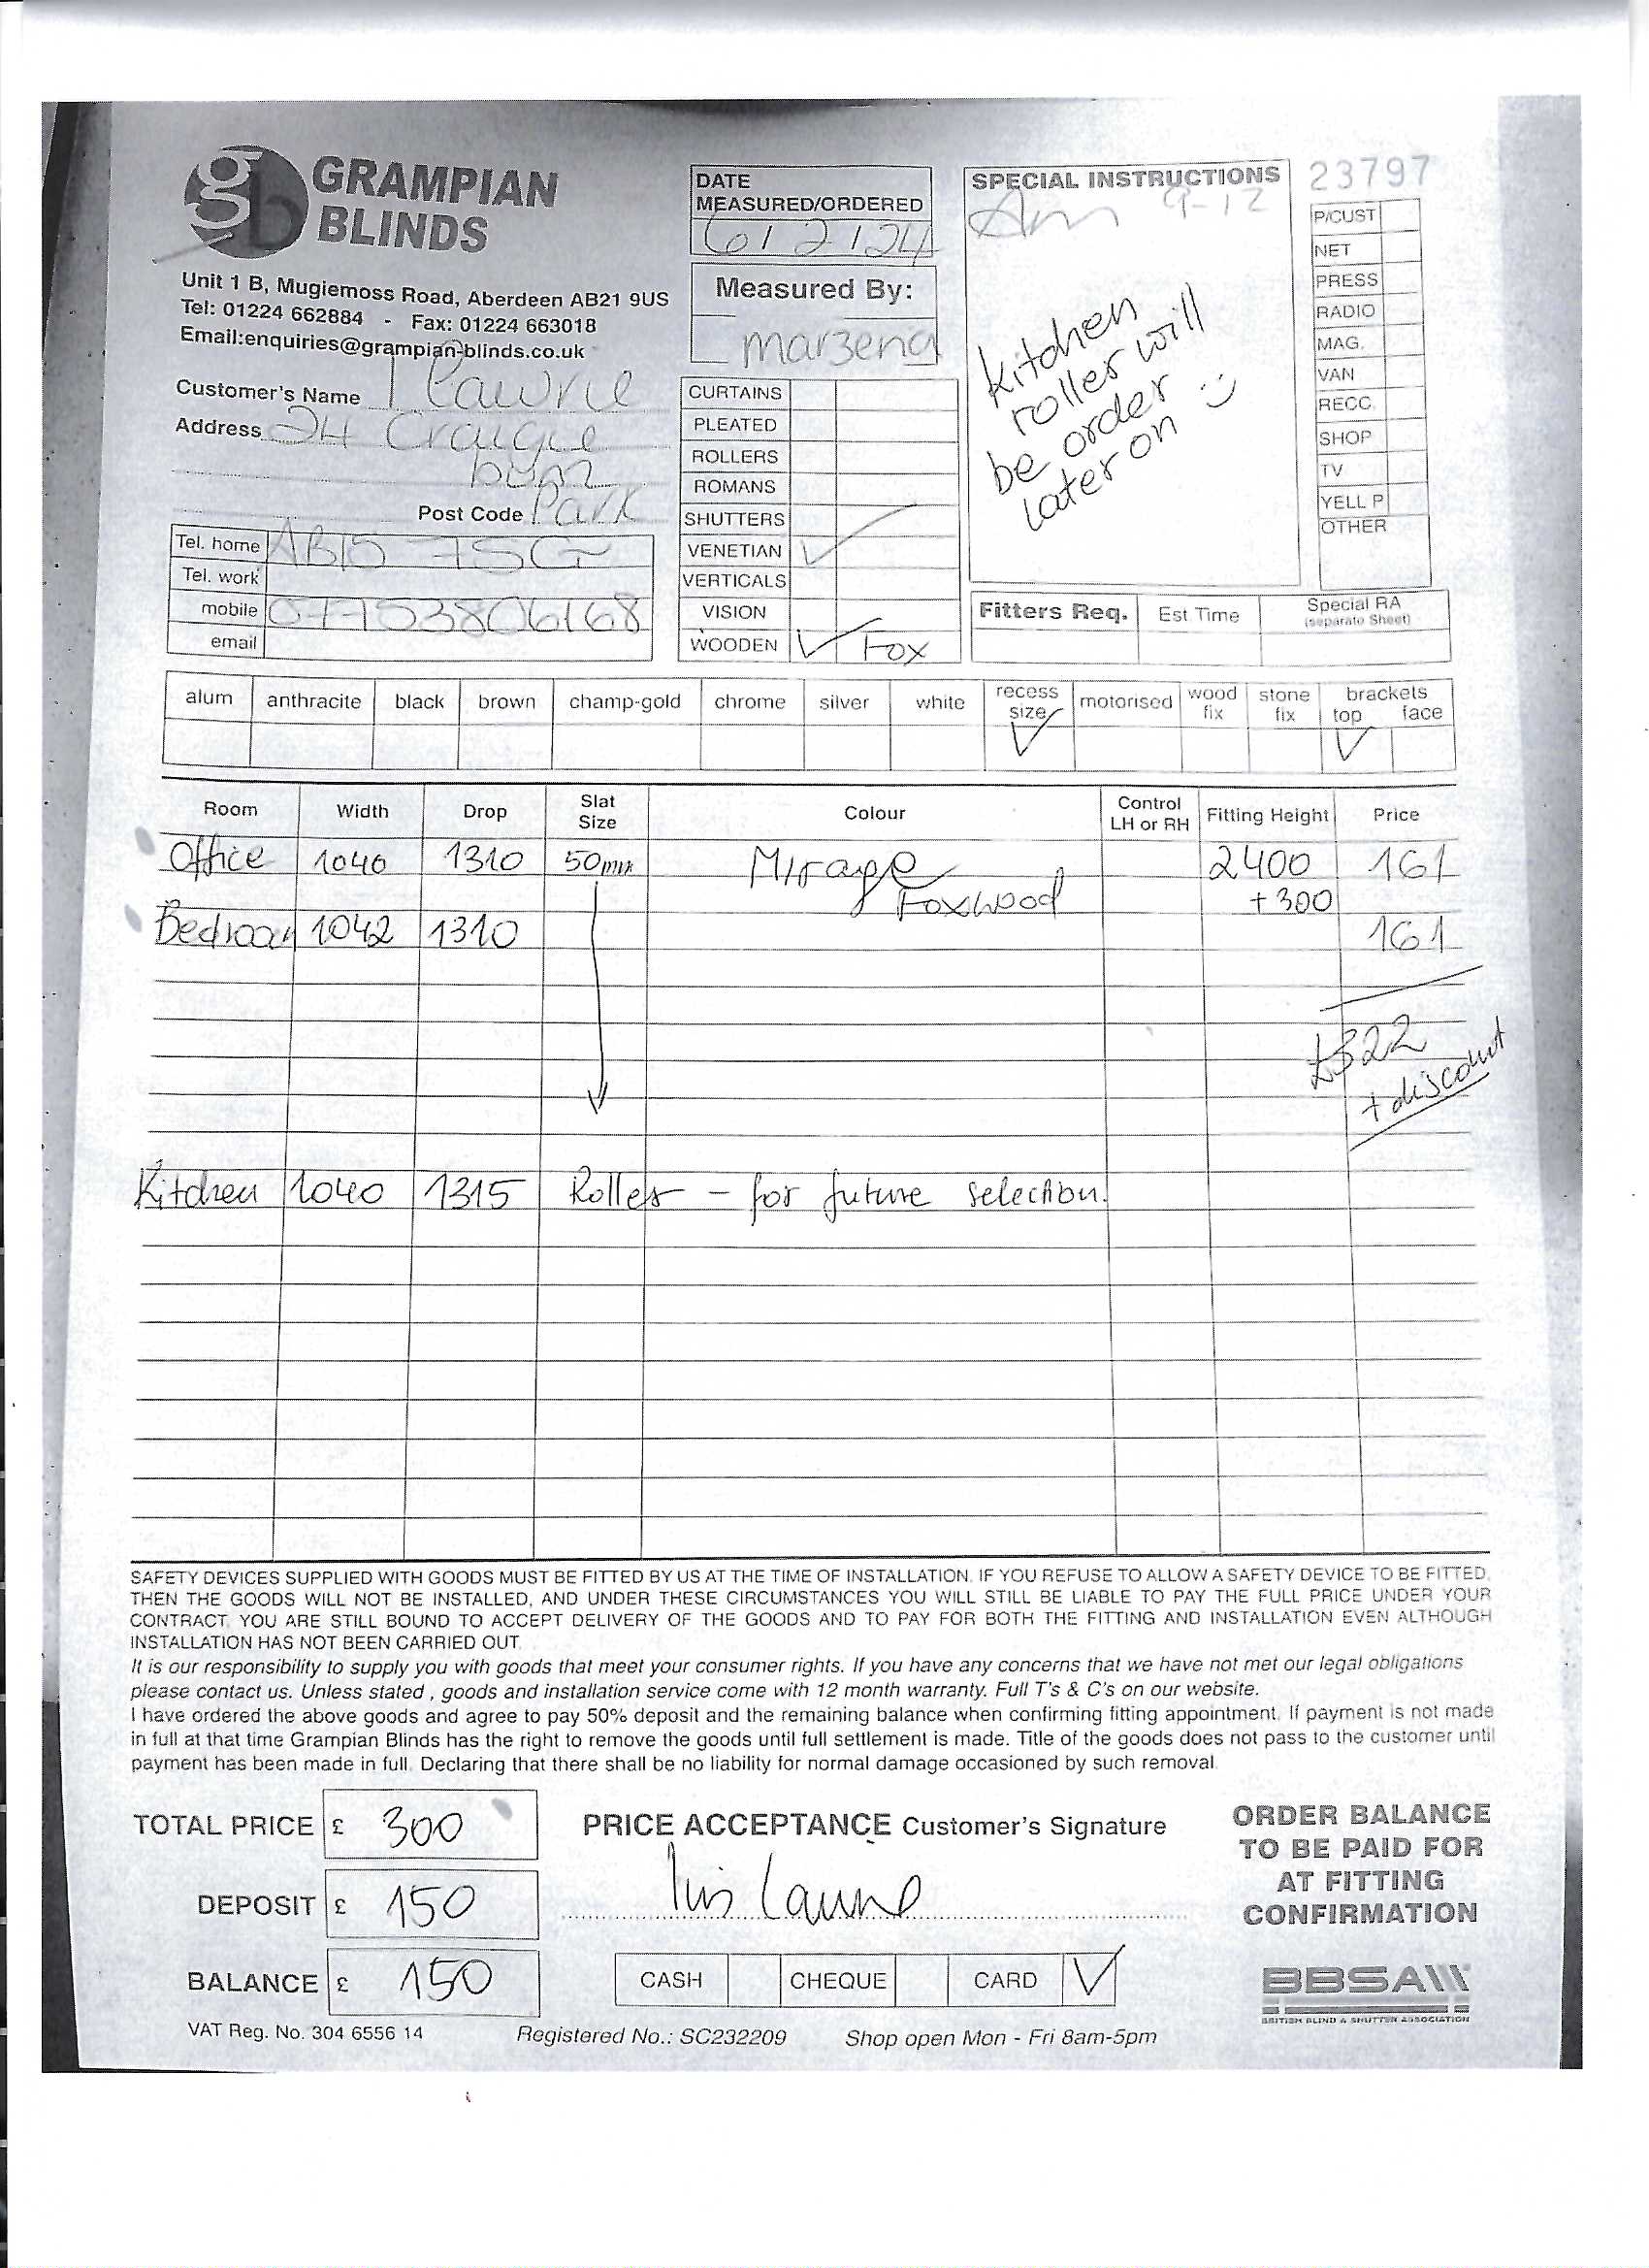 GRAMPIAN
BLINDS
gb
Unit 1 B, Mugiemoss Road, Aberdeen AB21 9US
Tel: 01224 662884 - Fax: 01224 663018
Email:enquiries@grampian-blinds.co.uk
Customer's Name I Lawrie
Address 24 Craigie
burn
Post Code Park
Tel. home AB15 7SG
Tel. work
mobile 07753806168
email
DATE
MEASURED/ORDERED
6/2/24
Measured By:
marzena
CURTAINS
PLEATED
ROLLERS
ROMANS
SHUTTERS
VENETIAN ✓
VERTICALS
VISION
WOODEN ✓ Fox
SPECIAL INSTRUCTIONS
Am 9-12
Kitchen
roller will
be order
later on :)
23797
P/CUST
NET
PRESS
RADIO
MAG.
VAN
RECC.
SHOP
TV
YELL P
OTHER
Fitters Req. Est Time Special RA
(separate Sheet)
alum anthracite black brown champ-gold chrome silver white recess size motorised wood fix stone fix brackets top face
✓ ✓
Room Width Drop Slat Size Colour Control LH or RH Fitting Height Price
Office 1040 1310 50mm Mirage 2400 161
Foxwood +300
Bedroom 1042 1310 161
£322
+ discount
Kitchen 1040 1315 Roller - for future selection.
SAFETY DEVICES SUPPLIED WITH GOODS MUST BE FITTED BY US AT THE TIME OF INSTALLATION. IF YOU REFUSE TO ALLOW A SAFETY DEVICE TO BE FITTED,
THEN THE GOODS WILL NOT BE INSTALLED, AND UNDER THESE CIRCUMSTANCES YOU WILL STILL BE LIABLE TO PAY THE FULL PRICE UNDER YOUR
CONTRACT. YOU ARE STILL BOUND TO ACCEPT DELIVERY OF THE GOODS AND TO PAY FOR BOTH THE FITTING AND INSTALLATION EVEN ALTHOUGH
INSTALLATION HAS NOT BEEN CARRIED OUT.
It is our responsibility to supply you with goods that meet your consumer rights. If you have any concerns that we have not met our legal obligations
please contact us. Unless stated , goods and installation service come with 12 month warranty. Full T's & C's on our website.
I have ordered the above goods and agree to pay 50% deposit and the remaining balance when confirming fitting appointment. If payment is not made
in full at that time Grampian Blinds has the right to remove the goods until full settlement is made. Title of the goods does not pass to the customer until
payment has been made in full. Declaring that there shall be no liability for normal damage occasioned by such removal.
TOTAL PRICE £ 300
DEPOSIT £ 150
BALANCE £ 150
PRICE ACCEPTANCE Customer's Signature
Iris Lawrie
CASH CHEQUE CARD ✓
ORDER BALANCE
TO BE PAID FOR
AT FITTING
CONFIRMATION
BBSA
BRITISH BLIND & SHUTTER ASSOCIATION
VAT Reg. No. 304 6556 14 Registered No.: SC232209 Shop open Mon - Fri 8am-5pm